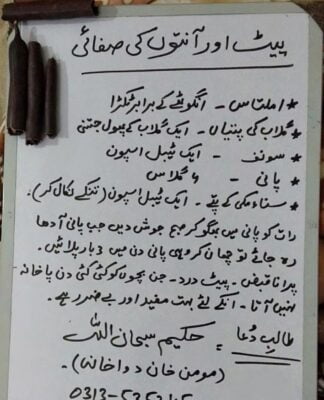 پیٹ اور آنتوں کی صفائی
* املتاس - انگوٹھے کے برابر ٹکڑا
* گلاب کی پتیاں - ایک گلاب کے پھول جتنی
* سونف - ایک ٹیبل اسپون
* پانی - گلاس
* سناء مکی کے پتے - ایک ٹیبل اسپون (تنکے نکال کر)
رات کو پانی میں بھگو کر صبح جوش دیں جب پانی آدھا
رہ جائے تو چھان کر وہی پانی دن میں 3 بار پلائیں.
پرانا قبض - پیٹ درد - جن بچوں کو کئی کئی دن پاخانہ
نہیں آتا - انکے لئے بہت مفید اور بے ضرر ہے.
طالب دعا = حکیم سبحان اللہ
(مومن خان دواخانہ).
0313-